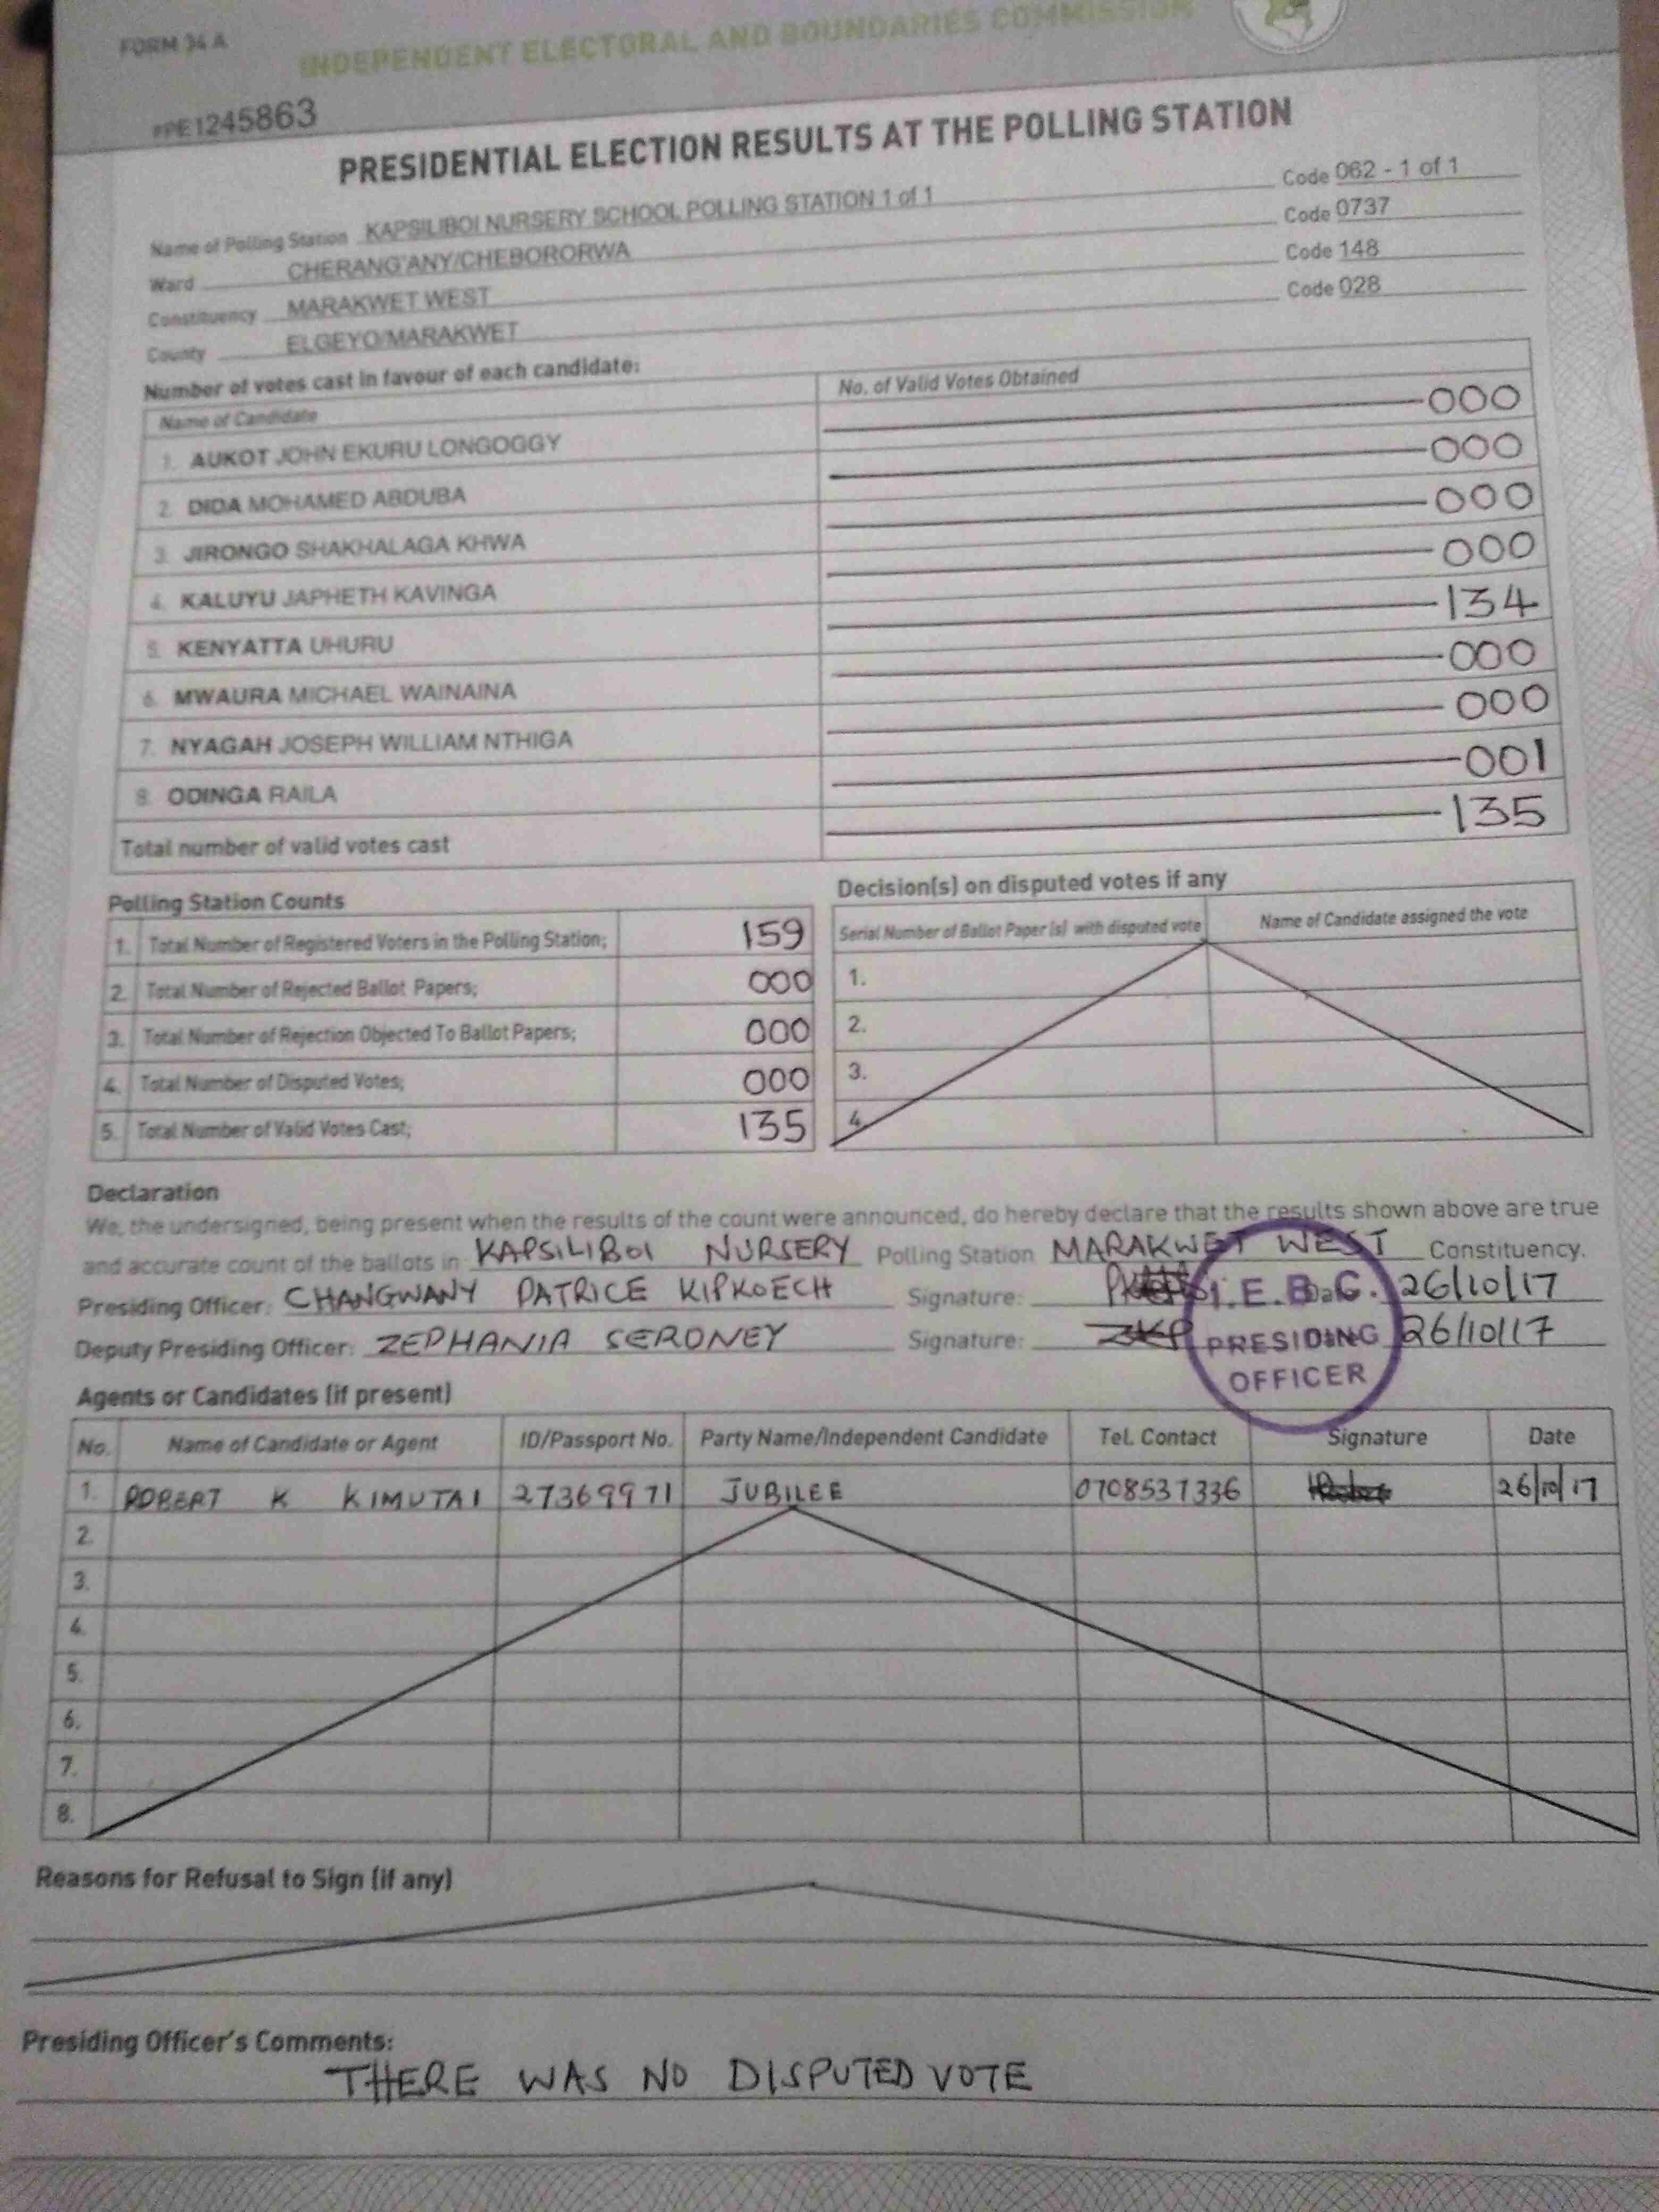 FORM 34 A
INDEPENDENT ELECTORAL AND BOUNDARIES COMMISSION
PPE1245863
PRESIDENTIAL ELECTION RESULTS AT THE POLLING STATION
Name of Polling Station KAPSILIBOI NURSERY SCHOOL POLLING STATION 1 of 1 Code 062 - 1 of 1
Ward CHERANG'ANY/CHEBORORWA Code 0737
Constituency MARAKWET WEST Code 148
County ELGEYO/MARAKWET Code 028
Number of votes cast in favour of each candidate:
Name of Candidate No. of Valid Votes Obtained
1. AUKOT JOHN EKURU LONGOGGY 000
2. DIDA MOHAMED ABDUBA 000
3. JIRONGO SHAKHALAGA KHWA 000
4. KALUYU JAPHETH KAVINGA 000
5. KENYATTA UHURU 134
6. MWAURA MICHAEL WAINAINA 000
7. NYAGAH JOSEPH WILLIAM NTHIGA 000
8. ODINGA RAILA 001
Total number of valid votes cast 135
Polling Station Counts
1. Total Number of Registered Voters in the Polling Station; 159
2. Total Number of Rejected Ballot Papers; 000
3. Total Number of Rejection Objected To Ballot Papers; 000
4. Total Number of Disputed Votes; 000
5. Total Number of Valid Votes Cast; 135
Decision(s) on disputed votes if any
Serial Number of Ballot Paper(s) with disputed vote Name of Candidate assigned the vote
1.
2.
3.
4.
Declaration
We, the undersigned, being present when the results of the count were announced, do hereby declare that the results shown above are true
and accurate count of the ballots in KAPSILIBOI NURSERY Polling Station MARAKWET WEST Constituency.
Presiding Officer: CHANGWANY PATRICE KIPKOECH Signature: Date 26/10/17
Deputy Presiding Officer: ZEPHANIA SERONEY Signature: Date 26/10/17
I.E.B.C.
PRESIDING
OFFICER
Agents or Candidates (if present)
No. Name of Candidate or Agent ID/Passport No. Party Name/Independent Candidate Tel. Contact Signature Date
1. ROBERT K KIMUTAI 27369971 JUBILEE 0708537336 26/10/17
2.
3.
4.
5.
6.
7.
8.
Reasons for Refusal to Sign (if any)
Presiding Officer's Comments:
THERE WAS NO DISPUTED VOTE